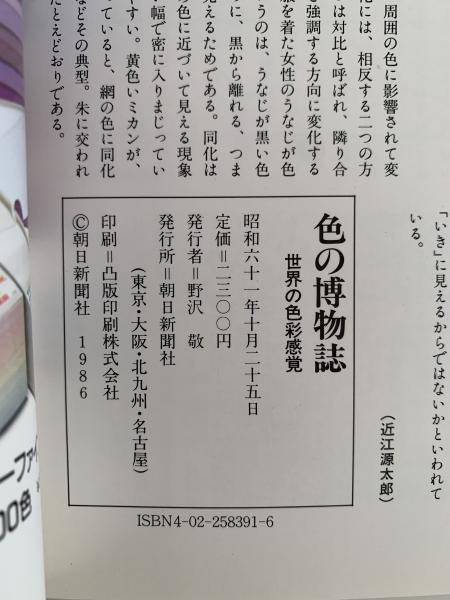 周囲の色に影響されて変
化には、相反する二つの方
は対比と呼ばれ、隣り合
を強調する方向に変化する
服を着た女性のうなじが色
うのは、うなじが黒い色
に、黒から離れる、つま
見えるためである。同化は
の色に近づいて見える現象
幅で密に入りまじってい
やすい。黄色いミカンが、
っていると、網の色に同化
などその典型。朱に交われ
たとえどおりである。
「いき」に見えるからではないかといわれて
いる。
(近江源太郎)
色の博物誌
世界の色彩感覚
昭和六十一年十月二十五日
定価=二三〇〇円
発行者=野沢 敬
発行所=朝日新聞社
(東京・大阪・北九州・名古屋)
印刷=凸版印刷株式会社
©朝日新聞社 1986
ISBN4-02-258391-6
ーファイ
00色